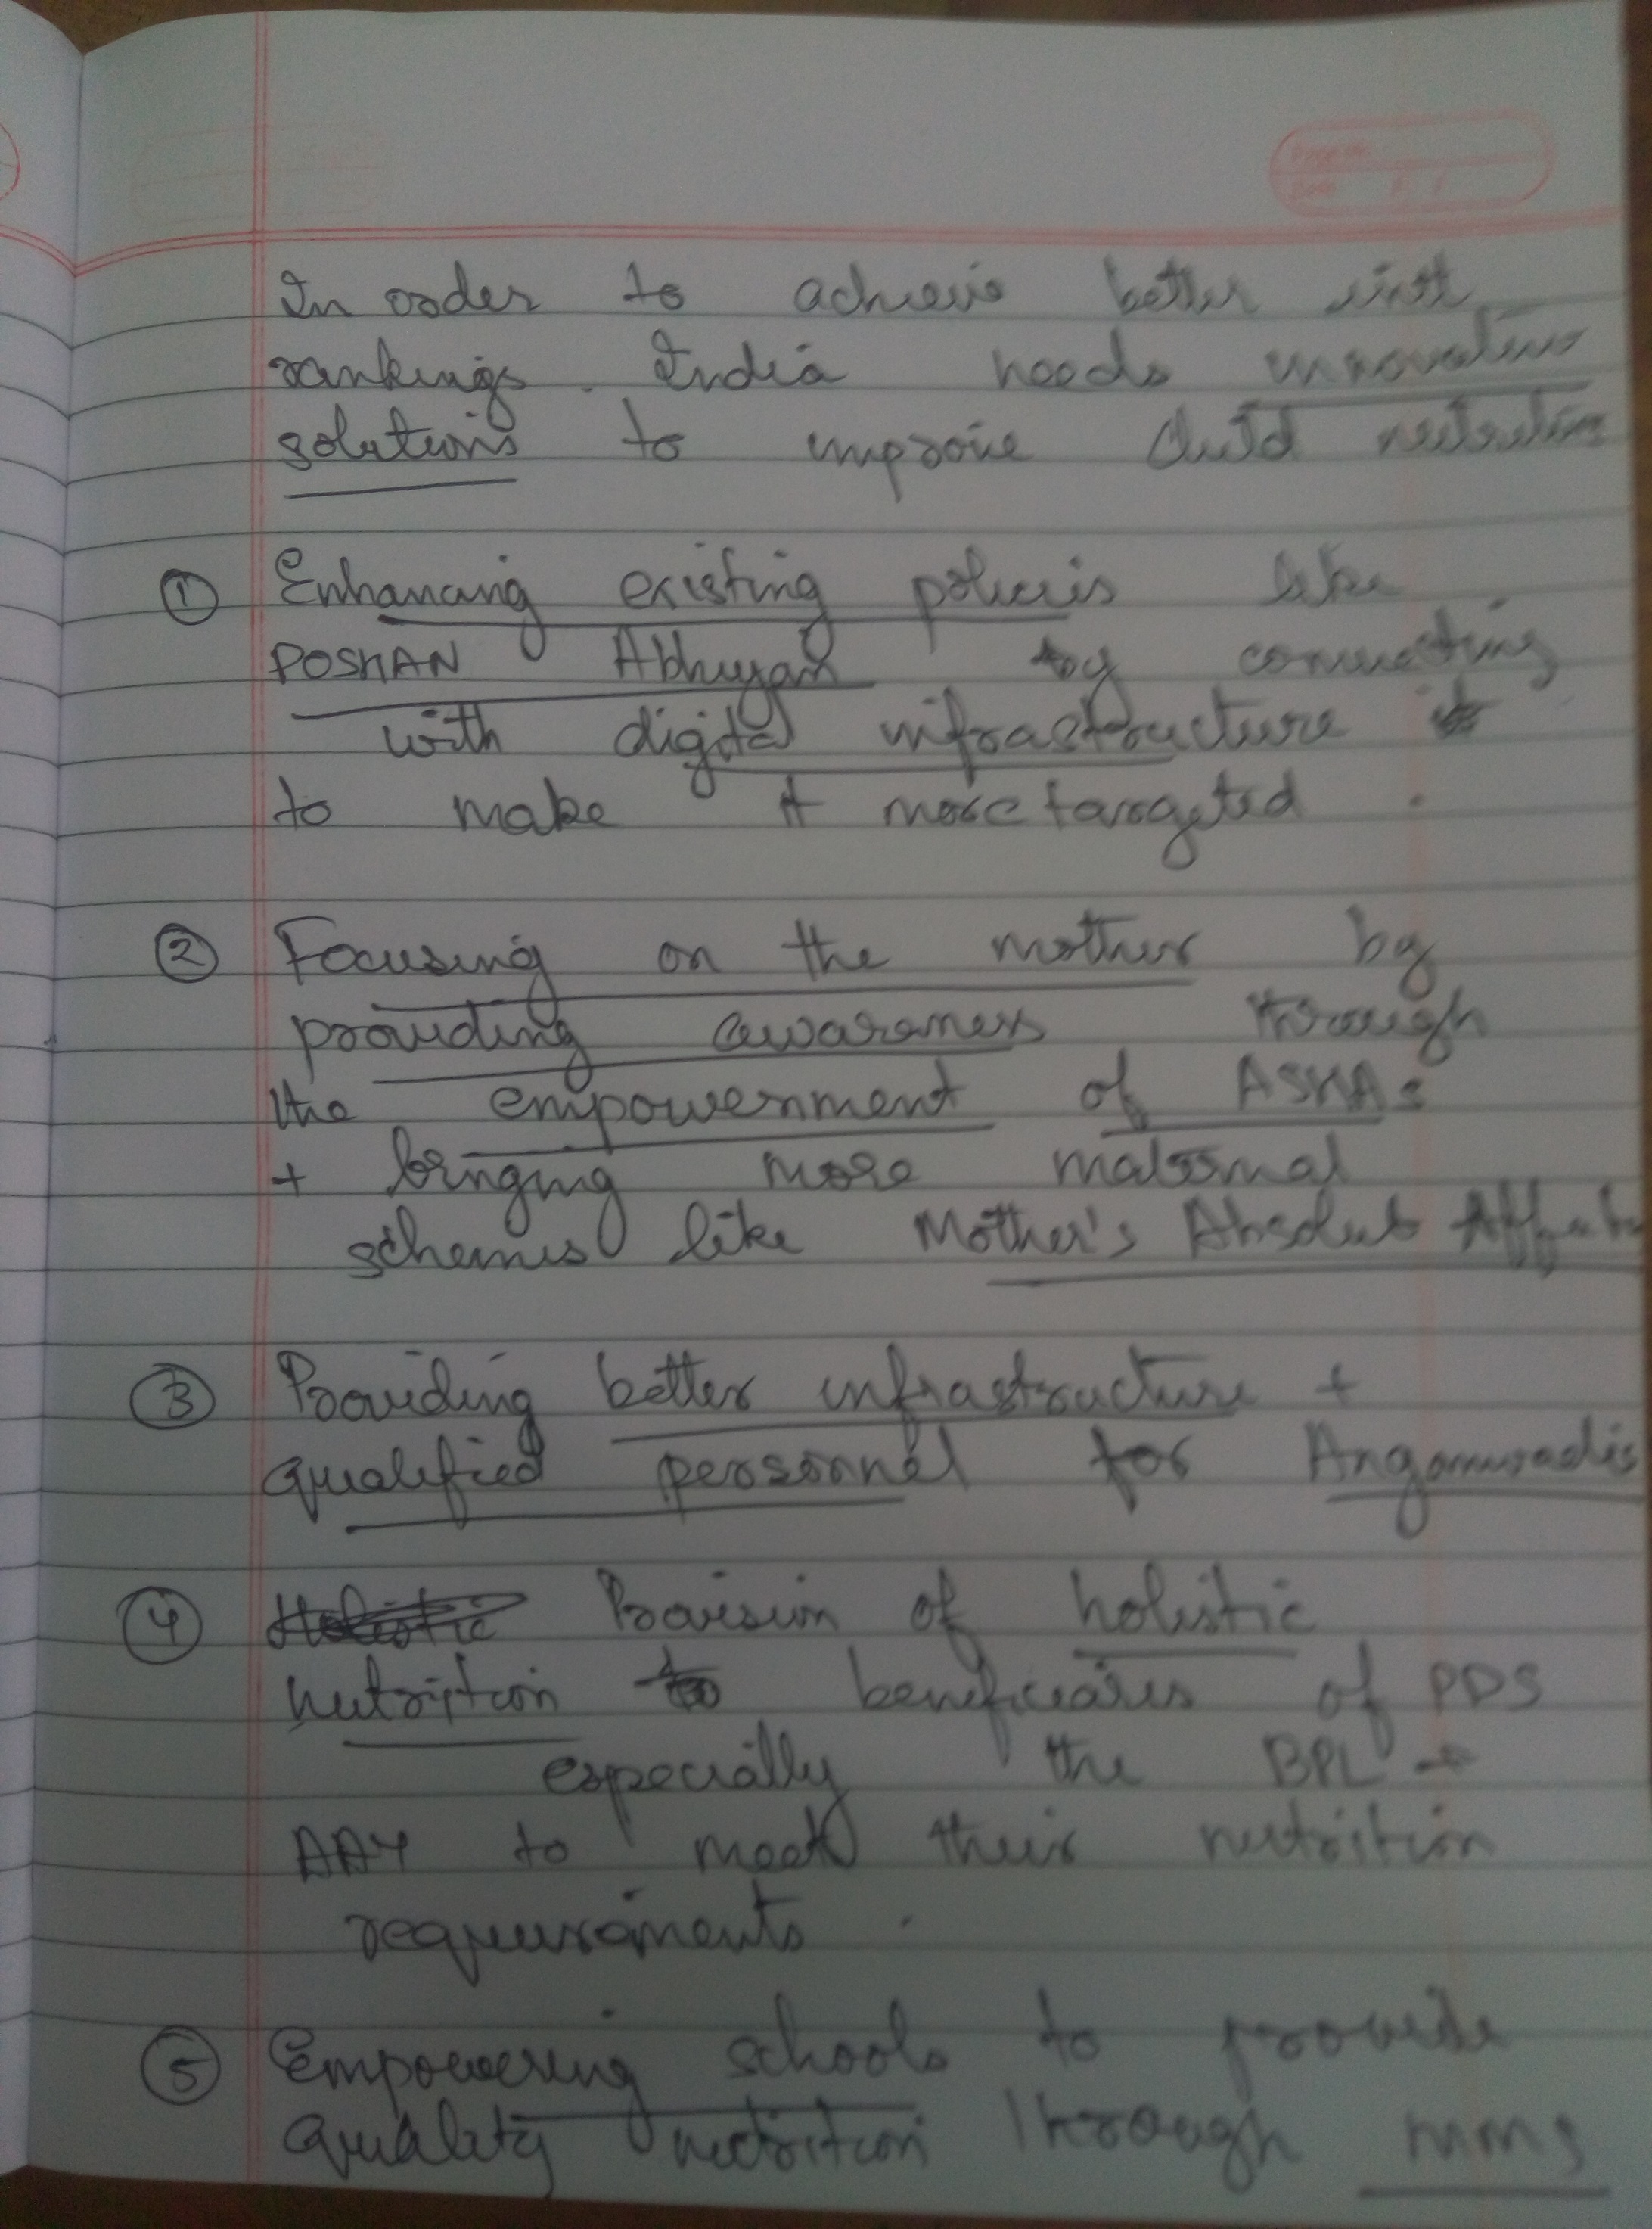 In order to achieve better
rankings. India needs innovative
solutions to improve child nutrition
① Enhancing existing policies like
POSHAN Abhiyan by connecting
with digital infrastructure
to make it more targeted.
② Focusing on the mother by
providing awareness through
the empowernment of ASHAs
+ bringing more maternal
schemes like Mother's Absolute
③ Providing better infrastructure +
qualified personnel for Anganwadis
④ Holistic Provision of holistic
nutrition to beneficiaries of PDS
especially the BPL +
AAY to meet their nutrition
requirements.
⑤ Empowering schools to provide
quality nutrition through MMS